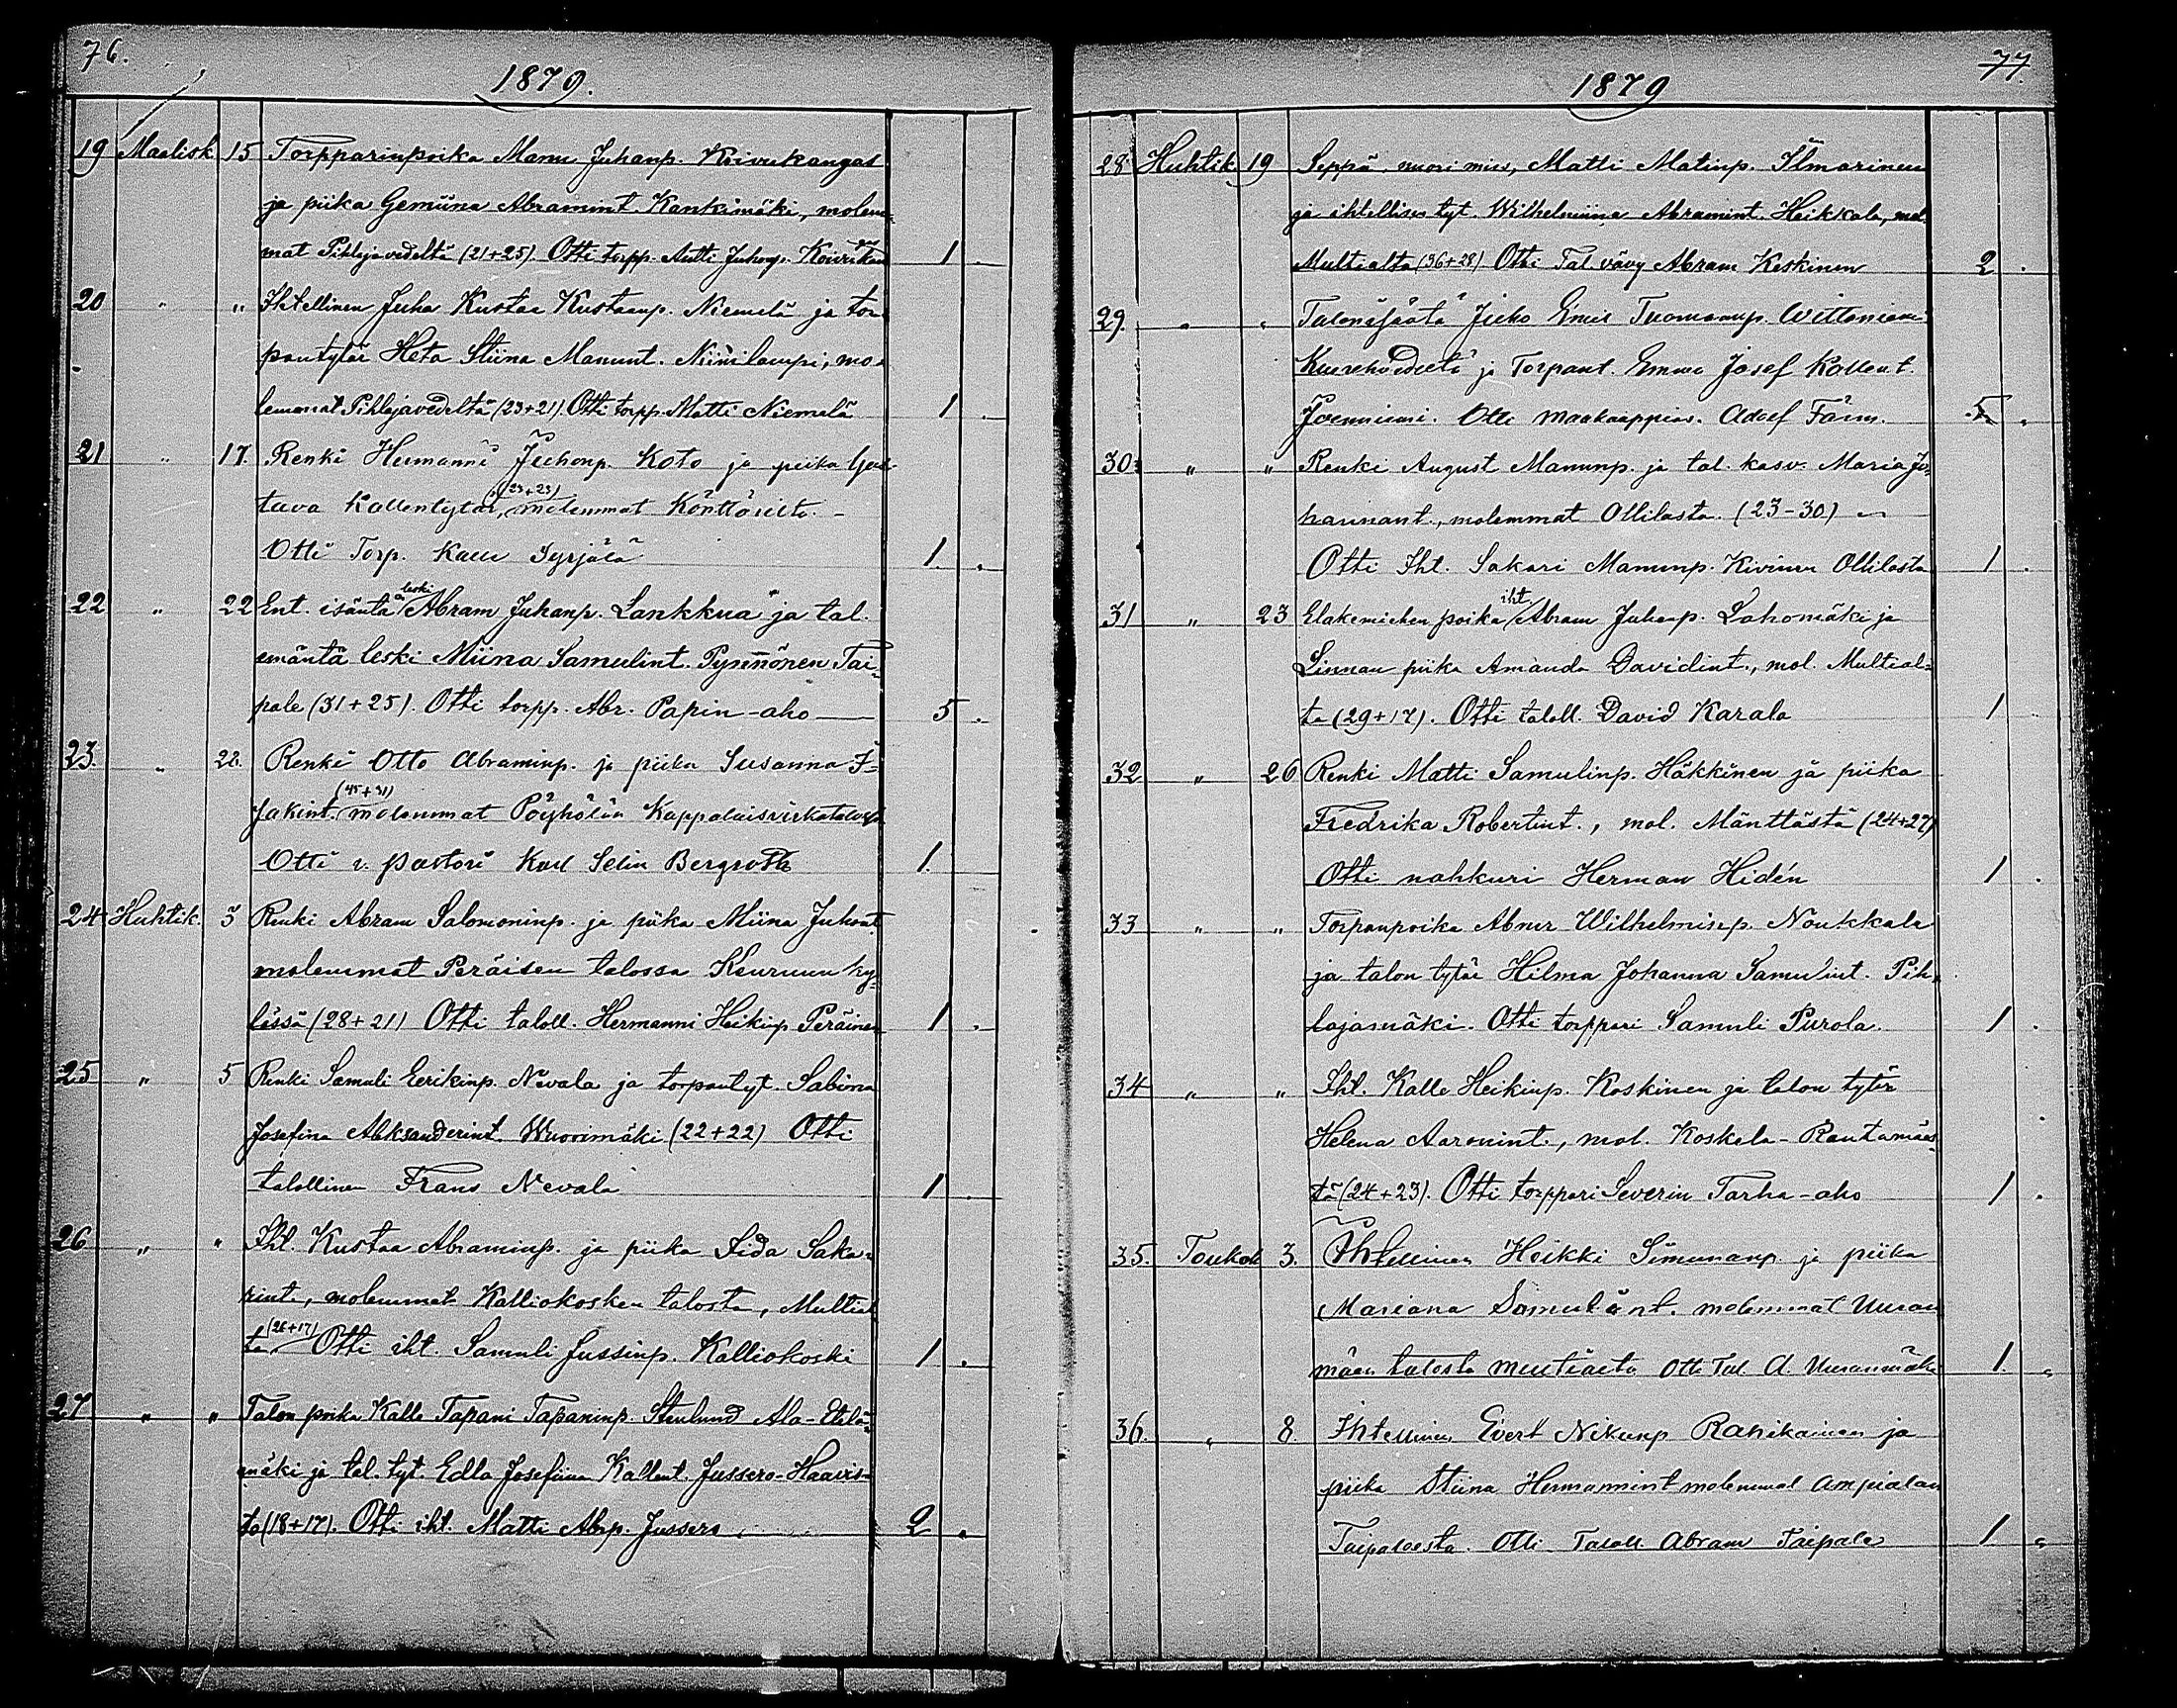 76.
1879.
19 Maalisk. 15 Torpparinpoika Manu Juhanp. Koivukangas
ja piika Gemiina Abramint. Kankimäki, molem-
mat Pihlajavedeltä (21+25). Otti torpp. Antti Juhanp. 1.
20 " " Ihtellinen Juha Kustaa Kustaanp. Niemelä ja tor-
pantytär Heta Stiina Manunt. Niinilampi, mo-
lemmat Pihlajavedeltä (23+21). Otti torpp. Matti Niemelä 1.
21 " 17. Renki Hermanni Juhonp. Koto ja piika Gus-
tava Kallentytär, (23+23) molemmat Könttärilta. -
Otti Torp. Kalle Syrjälä 1.
22 " 22 Ent. isäntä leski Abram Juhanp. Lankkua ja tal.
emäntä leski Miina Samulint. Pynnönen Tai-
pale (31+25). Otti torpp. Abr. Papin-aho — 5.
23. " 22. Renki Otto Abraminp. ja piika Susanna I-
Jakint. (45+31) molemmat Pöyhölän Kappalaisvirkatalosta
Otti v. pastori Karl Selim Bergroth 1.
24 Huhtik. 3 Renki Abram Salomoninp. ja piika Miina Juhont.
molemmat Peräisen talossa Keuruun ky-
lässä (28+21) Otti taloll. Hermanni Heikinp. Peräinen 1.
25 " 5 Renki Samuli Eerikinp. Nevala ja torpantyt. Sabina
Josefina Aleksanderint. Wuorimäki (22+22) Otti
talollinen Frans Nevala 1.
26 " " Iht. Kustaa Abraminp. ja piika Iida Saka-
rint., molemmat Kalliokosken talosta, Multial-
ta (26+17) Otti iht. Samuli Jussinp. Kalliokoski 1.
27 " " Talon poika Kalle Tapani Tapaninp. Stenlund Ala-Etelä-
mäki ja tal. tyt. Edla Josefiina Kallent. Jussero-Haavis-
to (18+17). Otti iht. Matti Abrp. Jussero. 2.
77.
1879
28 Huhtik. 19 Seppä, nuori mies, Matti Matinp. Ilmarinen
ja ihtellisen tyt. Wilhelmiina Abramint. Heikkala, mol.
Multialta (36+28) Otti Tal. vävy Abram Keskinen 2.
29. " " Talonisäntä Juho Emil Tuomaanp.
ja Torpant. Emma Josef Kallent.
Joenniemi. Otti maakauppias. Adolf Färm. 5.
30. " " Renki August Manunp. ja tal. kasv. Maria Jo-
hannant., molemmat Ollilasta. (23-30)
Otti Iht. Sakari Manunp. Kivinen Ollilasta 1.
31 " 23 Elakemiehen poika iht. Abram Juhanp. Lahomäki ja
Linnan piika Amanda Davidint., mol. Multial-
ta (29+17). Otti taloll. David Karala 1.
32 " 26 Renki Matti Samulinp. Häkkinen ja piika
Fredrika Robertint., mol. Mänttästä (24+27)
Otti nahkuri Herman Hidén 1.
33 " " Torpanpoika Abner Wilhelminp. Noukkala
ja talon tytär Hilma Johanna Samulint. Pih-
lajamäki. Otti torppari Samuli Purola. 1.
34 " " Iht. Kalle Heikinp. Koskinen ja talon tytär
Helena Aaronint., mol. Koskela-Rautamäes-
tä (24+23). Otti torppari Severin Tarha-aho 1.
35. Toukok 3. Ihtellinen Heikki Simunanp. ja piika
Mariana Samulint. molemmat Uuran
mäen talosta Multialta Otti Tal. A. Uuranmäki 1.
36. " 8. Ihtellinen Evert Nikunp Ranikainen ja
piika Stiina Hermannint molemmat Ampialan
Taipaleesta. Otti Taloll Abram Taipale 1.